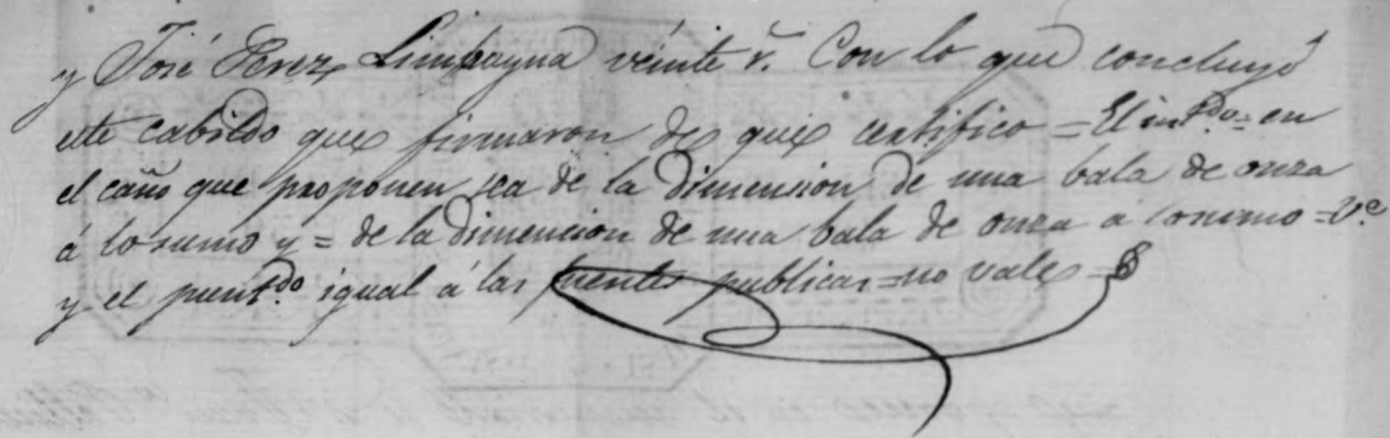 y José Perez Limpayna veinte r.^s Con lo que concluyó
este cabildo que firmaron de que certifico = El int^do = en
el caño que proponen sea de la dimension de una bala de onza
á lo sumo y = de la dimencion de una bala de onza á lo sumo = V.^e
y el punt^do igual á las fuentes publicas = no vale =